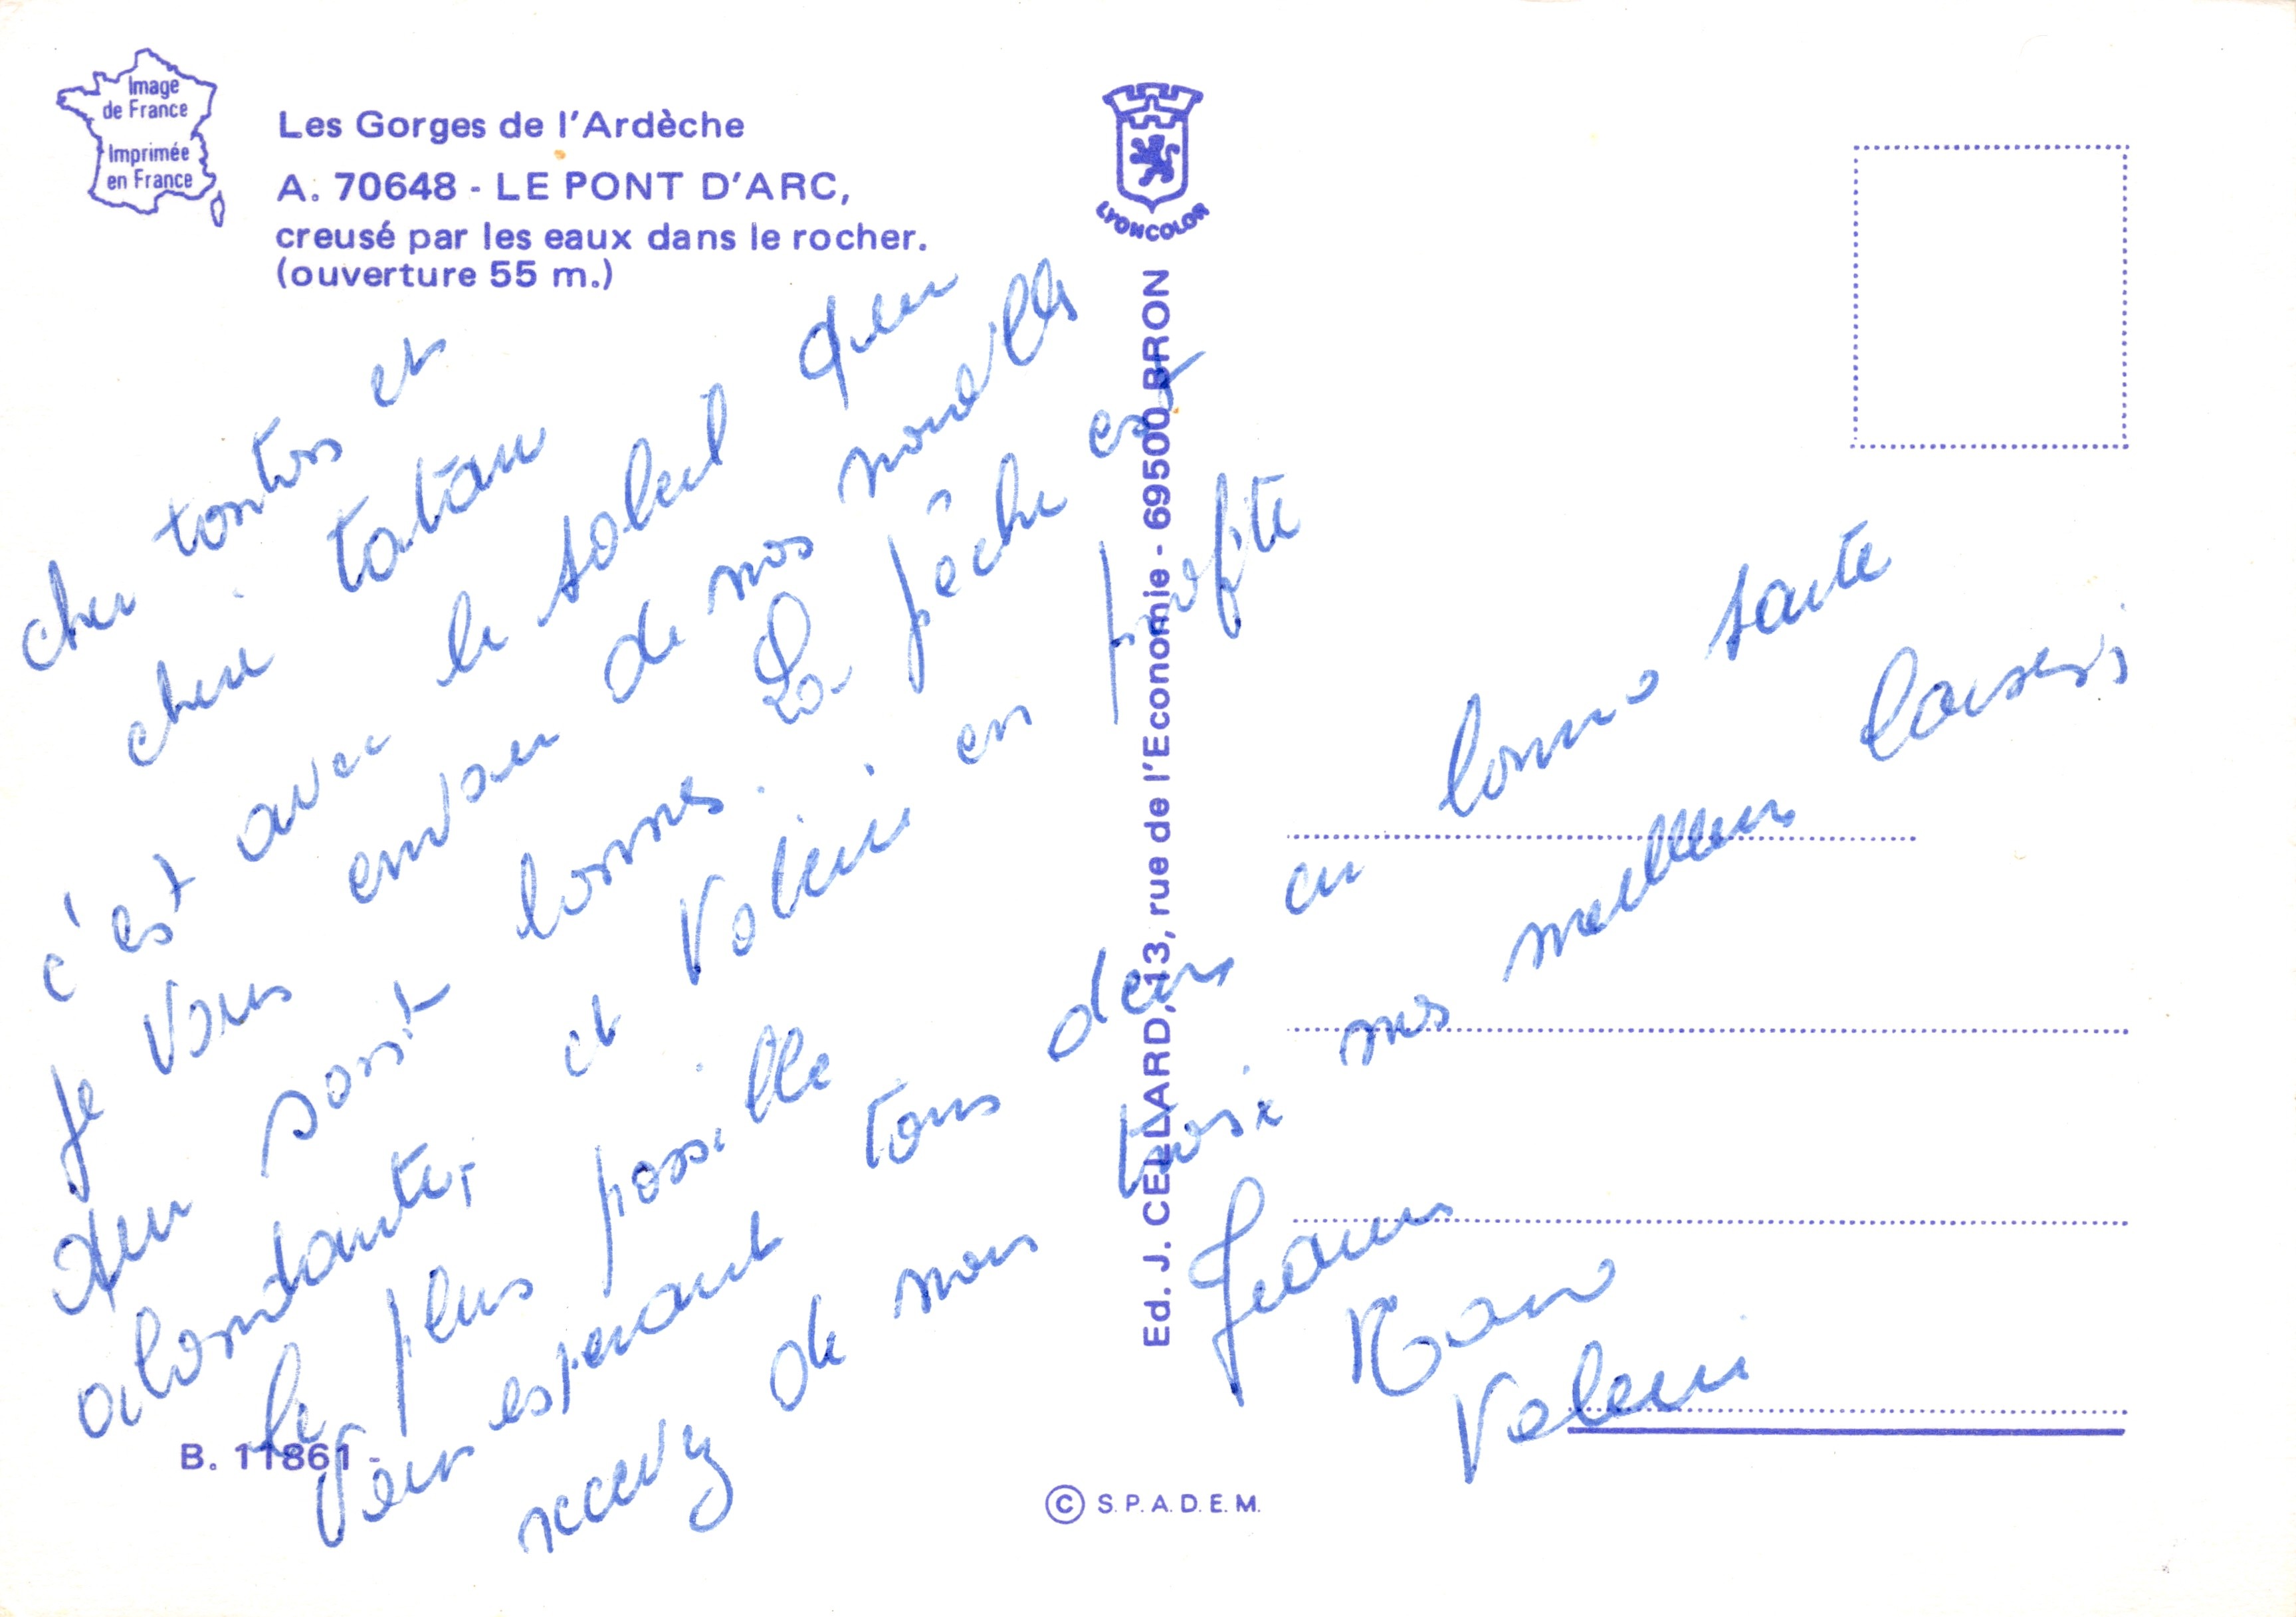 Image
de France
Imprimée
en France
Les Gorges de l'Ardèche
A. 70648 - LE PONT D'ARC,
creusé par les eaux dans le rocher.
(ouverture 55 m.)
LYONCOLOR
Ed. J. CELLARD, 13, rue de l'Economie - 69500 BRON
cher tonton et
cheri tatan
c'est avec le soleil que
je vous envoie de nos nouvelles
qui sont bonnes. La pêche est
abondante, et Valerie en profite
le plus possible
Vous esperant tous deux en bonne sante
recevez de nous trois nos meilleurs baisers
Jeanne
Valerie
B. 11861 -
© S.P.A.D.E.M.